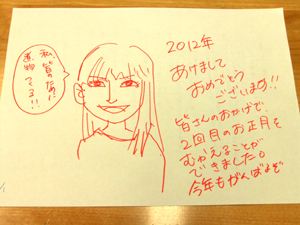 私皆のために
煮物してる!!
2012年
あけまして
おめでとう
ございます!!
皆さんのおかげで、
2回目のお正月を
むかえることが
できました。
今年もがんばるぞ